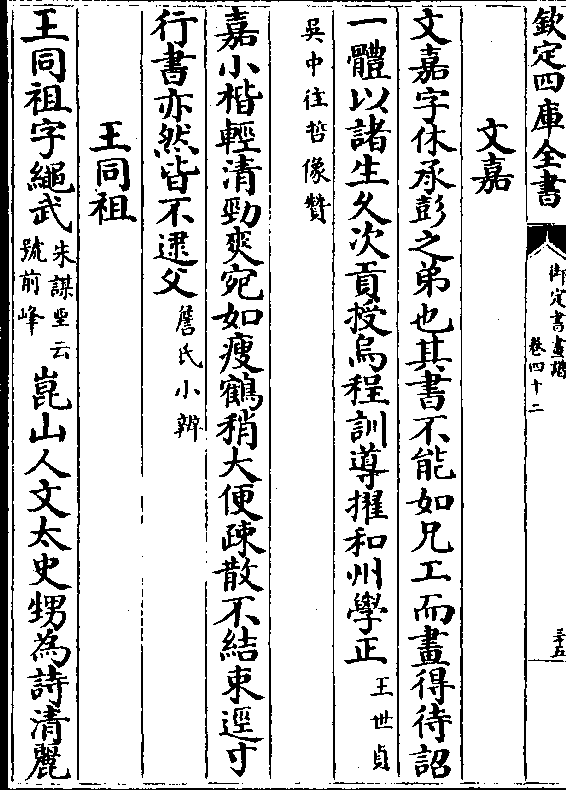 欽定四庫全書
御定書畫譜
卷四十二
三十五
文嘉
文嘉字休承彭之弟也其書不能如兄工而畫得待詔
一體以諸生久次貢授烏程訓導擢和州學正王世貞
吳中往哲像贊
嘉小楷輕清勁爽宛如瘦鶴稍大便疎散不結束逕寸
行書亦然皆不逮父詹氏小辨
王同祖
王同祖字繩武朱謀垔云號前峰崑山人文太史甥為詩清麗